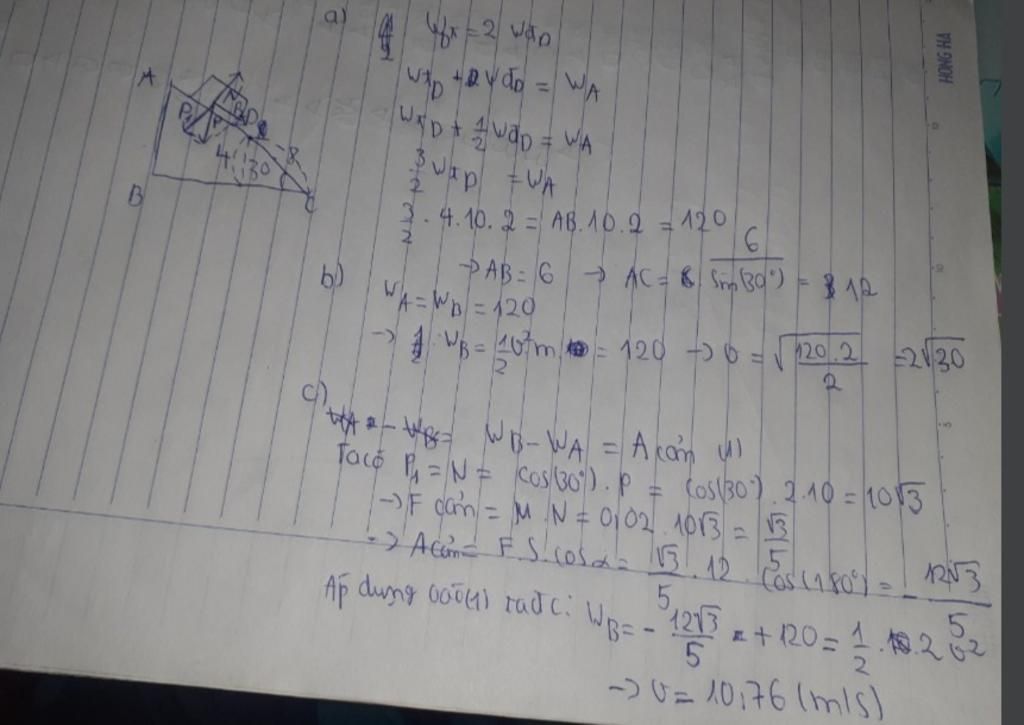 a) Wt = 2 WđD
WtD + WđD = WA
WtD + 1/2 WđD = WA
3/2 WtD = WA
3/2 . 4.10.2 = AB.10.2 = 120
→ AB = 6 → AC = 6/sin(30°) = 12
A
B
C
D
N
P1
P
4
30
8
b) WA = WB = 120
→ WB = 1/2 v²m = 120 → v = √(120.2/2) = 2√30
c)
WB - WA = A cản (1)
Ta có P1 = N = cos(30°) . P = cos(30°) . 2.10 = 10√3
→ F cản = M.N = 0,02 . 10√3 = √3/5
→ A cản = F.S.cosα = √3/5 . 12 . cos(180°) = - 12√3/5
Áp dụng (1) ta đc: WB = - 12√3/5 + 120 = 1/2 . 2 v²
→ v = 10,76 (m/s)
HONG HA